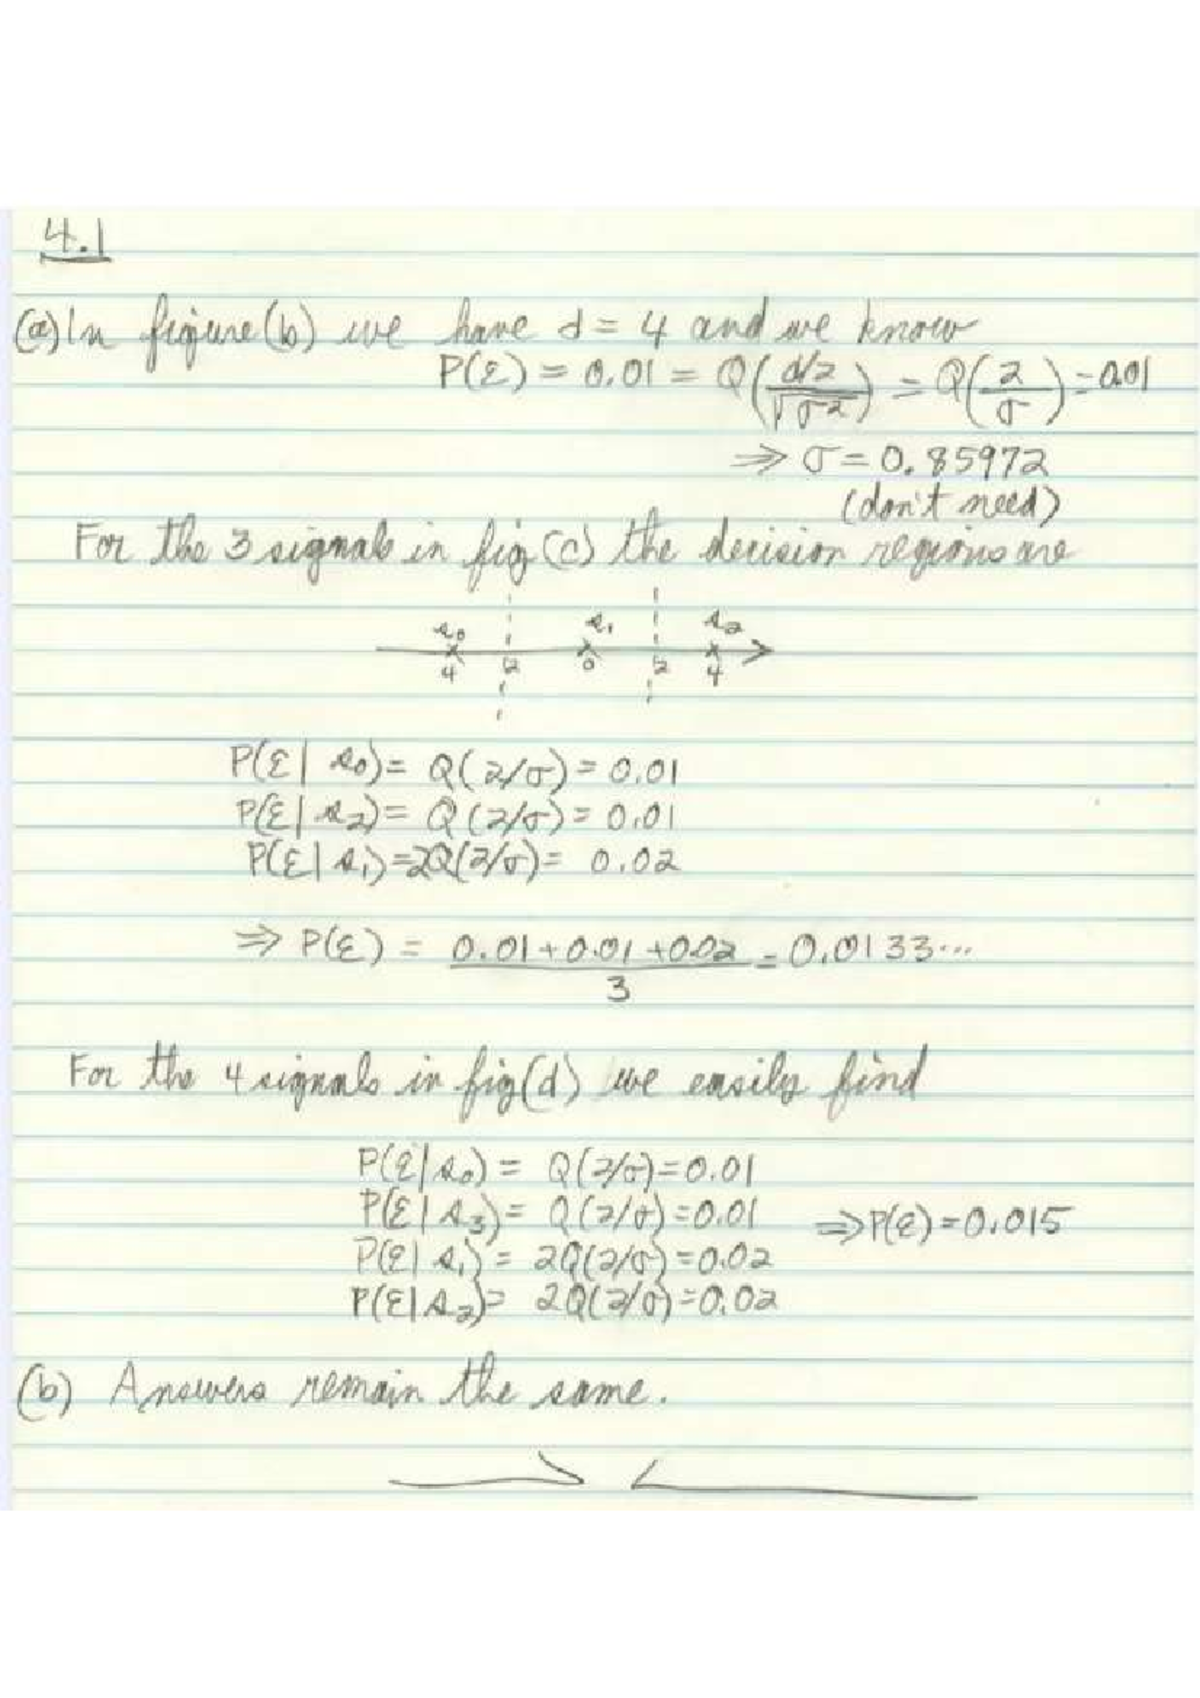 4.1
(a) In figure (b) we have d = 4 and we know
P(ε) = 0.01 = Q(d/2 / √σ²) = Q(2/σ) = 0.01
⇒ σ = 0.85972
(don't need)
For the 3 signals in fig (c) the decision regions are
s₀ s₁ s₂
4 2 0 2 4
P(ε| s₀) = Q(2/σ) = 0.01
P(ε| s₂) = Q(2/σ) = 0.01
P(ε| s₁) = 2Q(2/σ) = 0.02
⇒ P(ε) = (0.01 + 0.01 + 0.02)/3 = 0.0133...
For the 4 signals in fig (d) we easily find
P(ε| s₀) = Q(2/σ) = 0.01
P(ε| s₃) = Q(2/σ) = 0.01 ⇒ P(ε) = 0.015
P(ε| s₁) = 2Q(2/σ) = 0.02
P(ε| s₂) = 2Q(2/σ) = 0.02
(b) Answers remain the same.